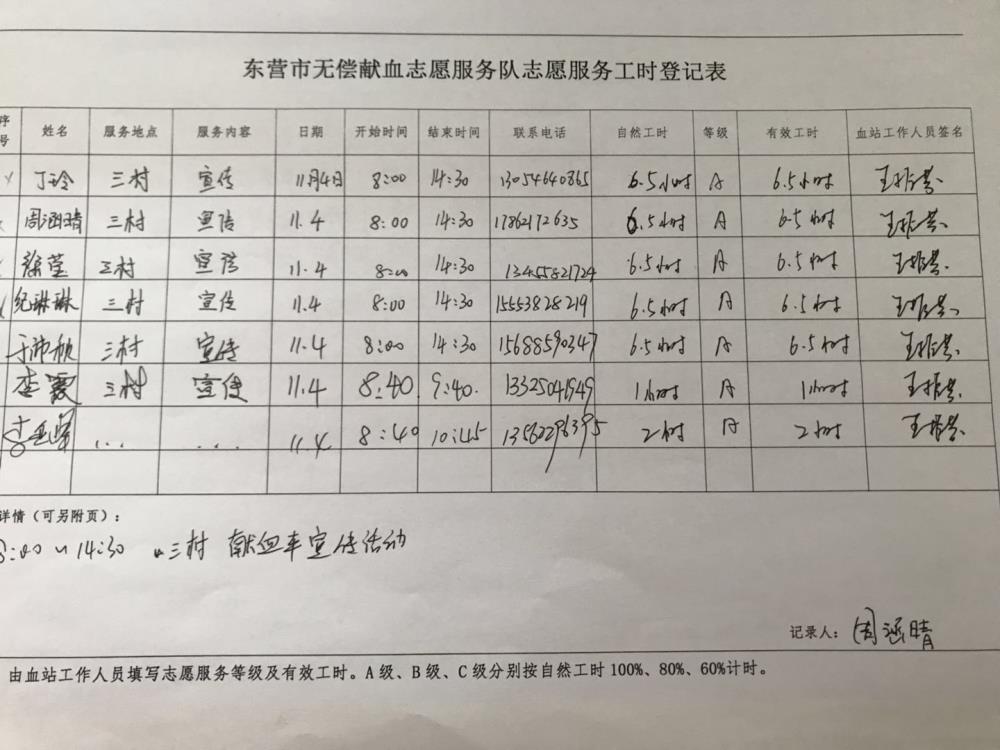 东营市无偿献血志愿服务队志愿服务工时登记表
序号 姓名 服务地点 服务内容 日期 开始时间 结束时间 联系电话 自然工时 等级 有效工时 血站工作人员签名
丁玲 三村 宣传 11月4日 8:00 14:30 13054640865 6.5小时 A 6.5小时
周涵晴 三村 宣传 11.4 8:00 14:30 17862172635 6.5小时 A 6.5小时
徐莹 三村 宣传 11.4 8:00 14:30 13455821724 6.5小时 A 6.5小时
纪琳琳 三村 宣传 11.4 8:00 14:30 15553828219 6.5小时 A 6.5小时
于沛欣 三村 宣传 11.4 8:00 14:30 15688590347 6.5小时 A 6.5小时
李霞 三村 宣传 11.4 8:40 9:40. 13325041949 1小时 A 1小时
... ... 11.4 8:40 10:45 13562296395 2小时 A 2小时
详情（可另附页）：
8:00~14:30 三村 献血车宣传活动
记录人：周涵晴
由血站工作人员填写志愿服务等级及有效工时。A级、B级、C级分别按自然工时100%、80%、60%计时。